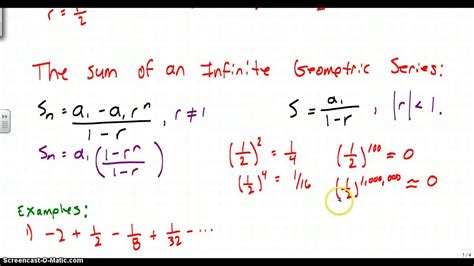 r = 1/2
The sum of an Infinite Geometric Series:
Sn = a₁ - a₁rⁿ / 1 - r , r ≠ 1
S = a₁ / 1 - r , |r| < 1.
Sn = a₁ (1 - rⁿ / 1 - r)
(1/2)² = 1/4
(1/2)¹⁰⁰ = 0
(1/2)⁴ = 1/16
(1/2)¹,⁰⁰⁰,⁰⁰⁰ ≈ 0
Examples:
1) -2 + 1/2 - 1/8 + 1/32 - ...
Screencast-O-Matic.com